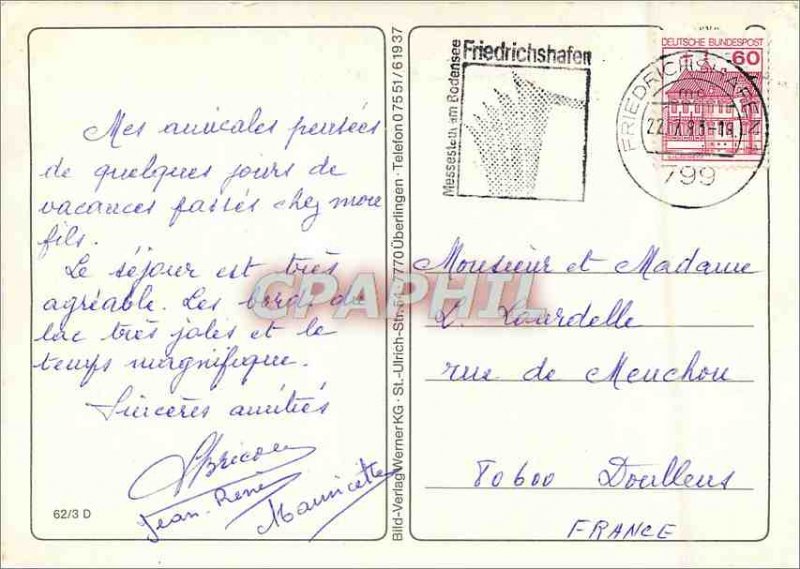 Mes amicales pensées
de quelques jours de
vacances passés chez mon
fils.
Le séjour est très
agréable. Les bords du
lac très jolis et le
temps magnifique.
Sincères amitiés
Jean-René
Mauricette
62/3 D
Bild-Verlag Werner KG · St.-Ulrich-Str. · 7770 Überlingen · Telefon 07551/61937
Messestadt am Bodensee
Friedrichshafen
DEUTSCHE BUNDESPOST
60
FRIEDRICHSHAFEN
799
Monsieur et Madame
L. Lourdelle
rue de Menchou
80600 Doullens
FRANCE
CPAPHIL